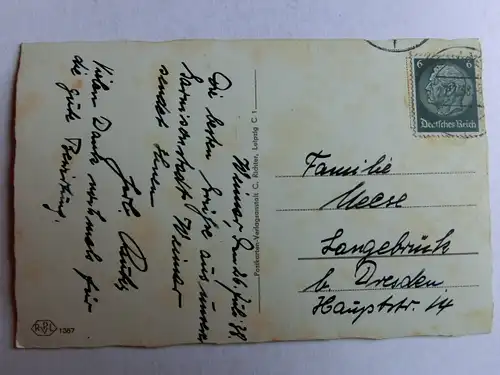 Weimar, den 26. Juli 38.
Die besten Grüße aus unserer
Garnisonstadt Weimar
sendet Ihnen
Vielen Dank nochmals für
die gute Bewirtung.
Postkarten-Verlagsanstalt C. Richter, Leipzig C 1
6 6
Deutsches Reich
Familie
Meese
Langebrück
b. Dresden
Hauptstr. 14
1387